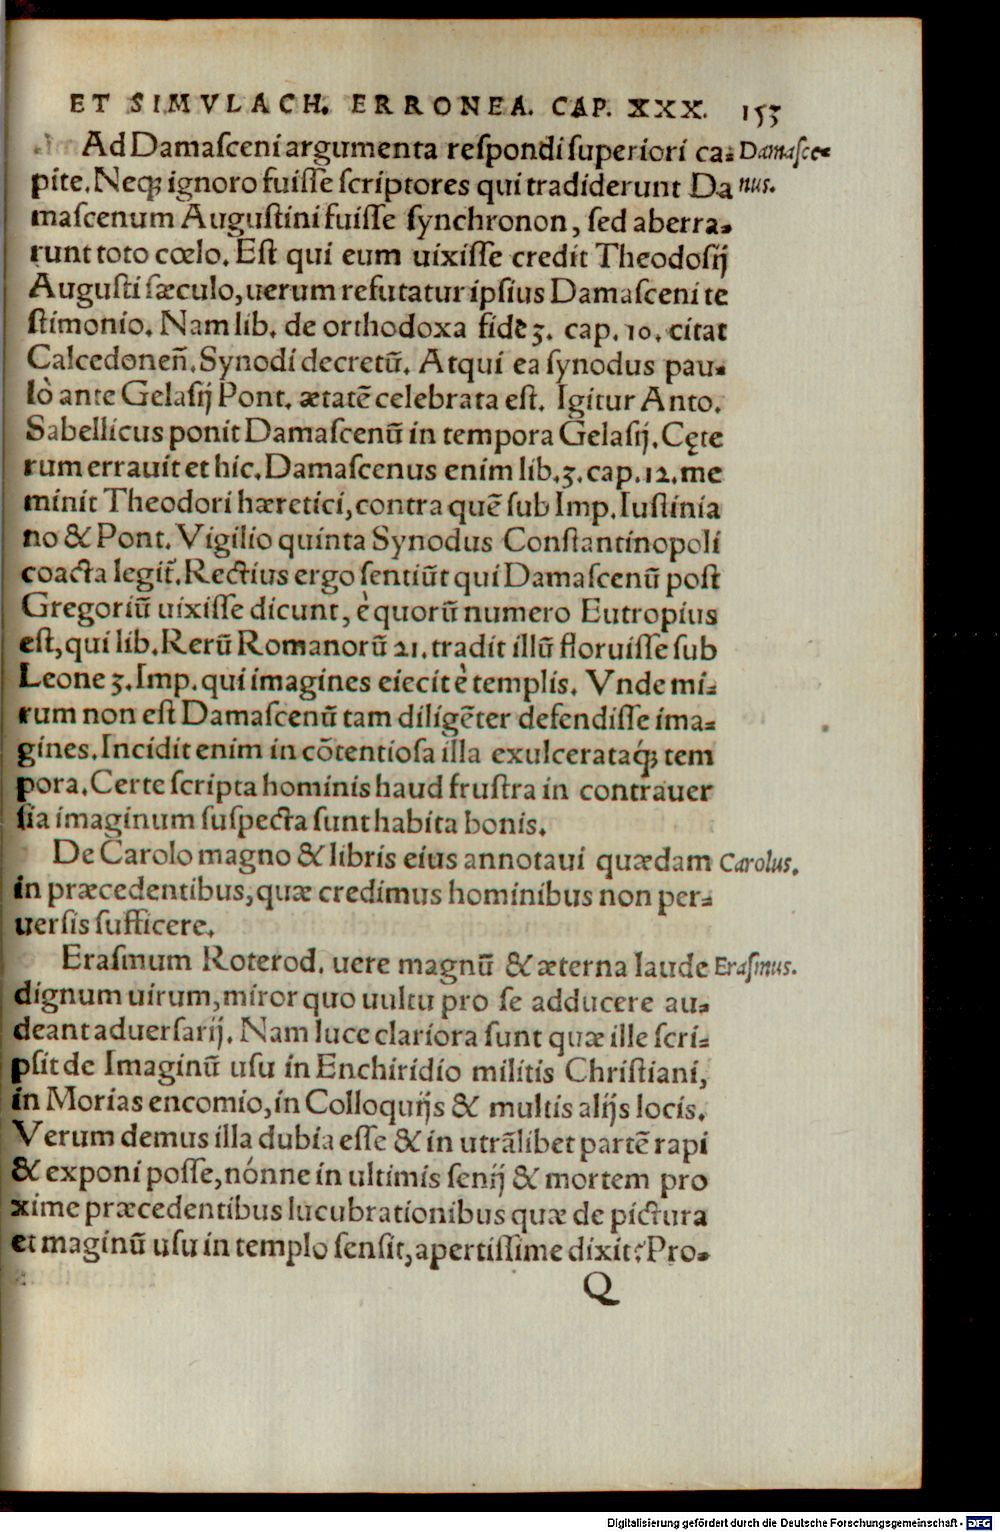 ET SIMVLACH. ERRONEA. CAP. XXX. 153
Ad Damaſceni argumenta reſpondi ſuperiori ca⸗ Damaſce⸗
pite. Neq; ignoro fuiſſe ſcriptores qui tradiderunt Da nus.
maſcenum Auguſtini fuiſſe ſynchronon, ſed aberra⸗
runt toto cœlo. Eſt qui eum uixiſſe credit Theodoſij
Auguſti ſæculo, uerum refutatur ipſius Damaſceni te
ſtimonio. Nam lib. de orthodoxa fide 3. cap. 10. citat
Calcedoneñ. Synodi decretũ. Atqui ea ſynodus pau⸗
lò ante Gelaſij Pont. ætatẽ celebrata eſt. Igitur Anto.
Sabellicus ponit Damaſcenũ in tempora Gelaſij. Cęte
rum errauit et hic. Damaſcenus enim lib. 3. cap. 12. me
minit Theodori hæretici, contra quẽ ſub Imp. Iuſtinia
no & Pont. Vigilio quinta Synodus Conſtantinopoli
coacta legit̃. Rectius ergo ſentiũt qui Damaſcenũ poſt
Gregoriũ uixiſſe dicunt, è quorũ numero Eutropius
eſt, qui lib. Rerũ Romanorũ 21. tradit illũ floruiſſe ſub
Leone 3. Imp. qui imagines eiecit è templis. Vnde mi⸗
rum non eſt Damaſcenũ tam diligẽter defendiſſe ima⸗
gines. Incidit enim in cõtentioſa illa exulcerataq́; tem
pora. Certe ſcripta hominis haud fruſtra in contrauer
ſia imaginum ſuſpecta ſunt habita bonis.
De Carolo magno & libris eius annotaui quædam Carolus.
in præcedentibus, quæ credimus hominibus non per⸗
uerſis ſufficere.
Eraſmum Roterod. uere magnũ & æterna laude Eraſmus.
dignum uirum, miror quo uultu pro ſe adducere au⸗
deant aduerſarij. Nam luce clariora ſunt quæ ille ſcri⸗
pſit de Imaginũ uſu in Enchiridio militis Chriſtiani,
in Morias encomio, in Colloquijs & multis alijs locis.
Verum demus illa dubia eſſe & in utrãlibet partẽ rapi
& exponi poſſe, nónne in ultimis ſenij & mortem pro
xime præcedentibus lucubrationibus quæ de pictura
et maginũ uſu in templo ſenſit, apertiſſime dixit? Pro⸗
Q
Digitalisierung gefördert durch die Deutsche Forschungsgemeinschaft - DFG